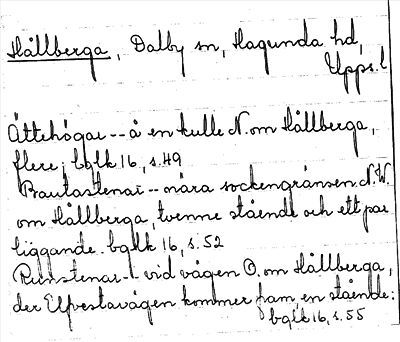 Hållberga, Dalby sn, Hagunda hd,
Upps. l
Ättehögar -- å en kulle N. om Hållberga,
flere; bqlk 16, s. 49
Bautastenar -- nära sockengränsen N.W.
om Hållberga, tvenne stående och ett par
liggande. bqlk 16, s. 52
Runstenar -- vid vägen O. om Hållberga,
der Elfvestavägen kommer fram, en stående;
bqlk 16, s. 55